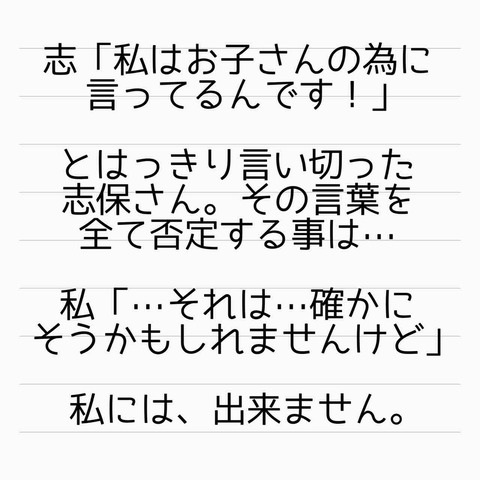 志「私はお子さんの為に
言ってるんです！」
とはっきり言い切った
志保さん。その言葉を
全て否定する事は…
私「…それは…確かに
そうかもしれませんけど」
私には、出来ません。